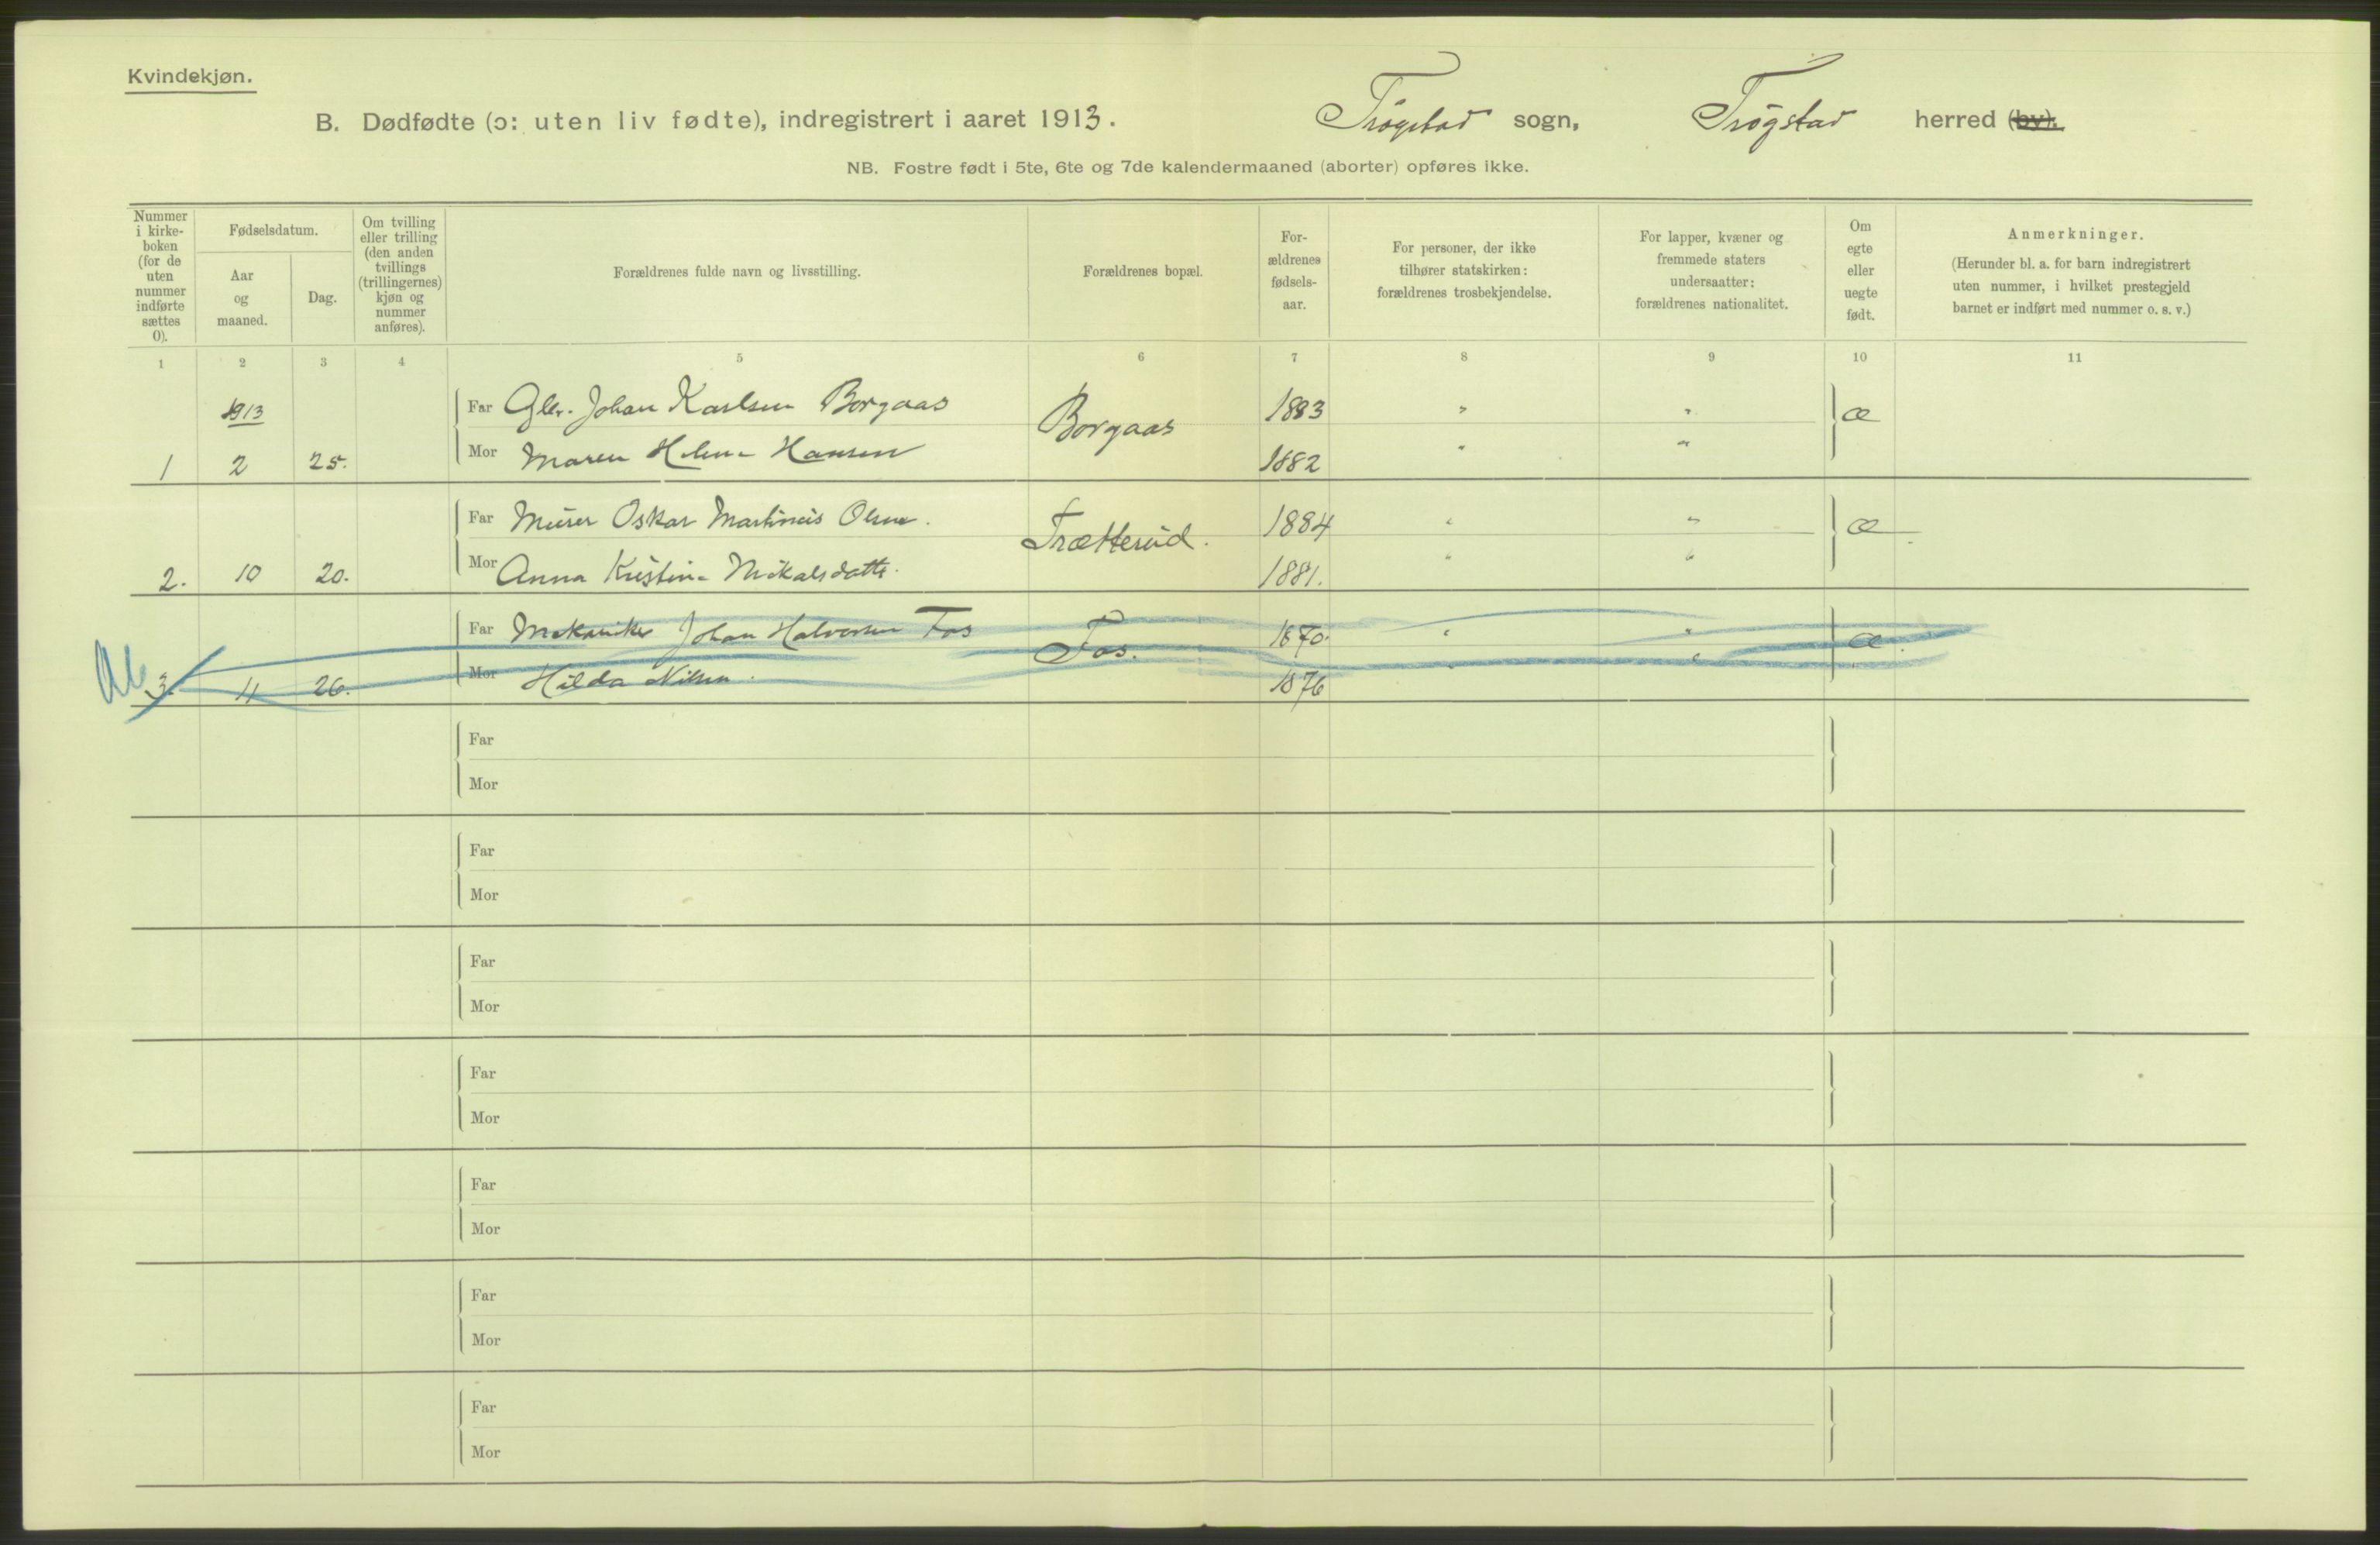 Kvindekjøn.
B. Dødfødte (ɔ: uten liv fødte), indregistrert i aaret 1913. Trøgstad sogn, Trøgstad herred (by).
NB. Fostre født i 5te, 6te og 7de kalendermaaned (aborter) opføres ikke.
Nummer i kirke-boken (for de uten nummer indførte sættes 0).
Fødselsdatum.
Aar og maaned.
Dag.
Om tvilling eller trilling (den anden tvillings (trillingernes) kjøn og nummer anføres).
Forældrenes fulde navn og livsstilling.
Forældrenes bopæl.
For-ældrenes fødsels-aar.
For personer, der ikke tilhører statskirken: forældrenes trosbekjendelse.
For lapper, kvæner og fremmede staters undersaatter: forældrenes nationalitet.
Om egte eller uegte født.
Anmerkninger.
(Herunder bl. a. for barn indregistrert uten nummer, i hvilket prestegjeld barnet er indført med nummer o. s. v.)
1 2 3 4 5 6 7 8 9 10 11
1913 Far Gbr. Johan Karlsen Borgaas Borgaas 1883 " " æ
1 2 25. Mor Maren Helene Hansen 1882 " "
Far Murer Oskar Martinius Olsen. Trætterud. 1884 " " æ
2. 10 20. Mor Anna Kristine Mikalsdatte. 1881. " "
Far Mekaniker Johan Halvorsen Fos Fos. 1870. " " æ
Ab 3. 11 26. Mor Hilda Nilsen. 1876 " "
Far
Mor
Far
Mor
Far
Mor
Far
Mor
Far
Mor
Far
Mor
Far
Mor